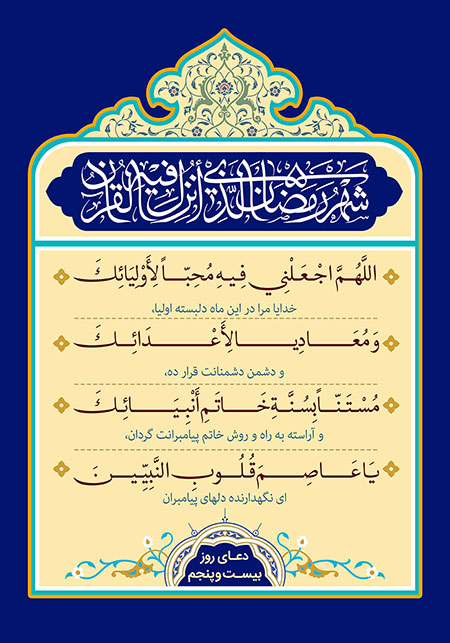 شهر رمضان الذی أنزل فیه القرآن
اللَّهُمَّ اجْعَلْنِي فِيهِ مُحِبّاً لِأَوْلِيَائِكَ
خدایا مرا در این ماه دلبسته اولیا،
وَمُعَادِيا لِأَعْدَائِكَ
و دشمن دشمنانت قرار ده،
مُسْتَنّاً بِسُنَّةِ خَاتَمِ أَنْبِيَائِكَ
و آراسته به راه و روش خاتم پیامبرانت گردان،
يَا عَاصِمَ قُلُوبِ النَّبِيِّينَ
ای نگهدارنده دلهای پیامبران
دعای روز
بیست و پنجم